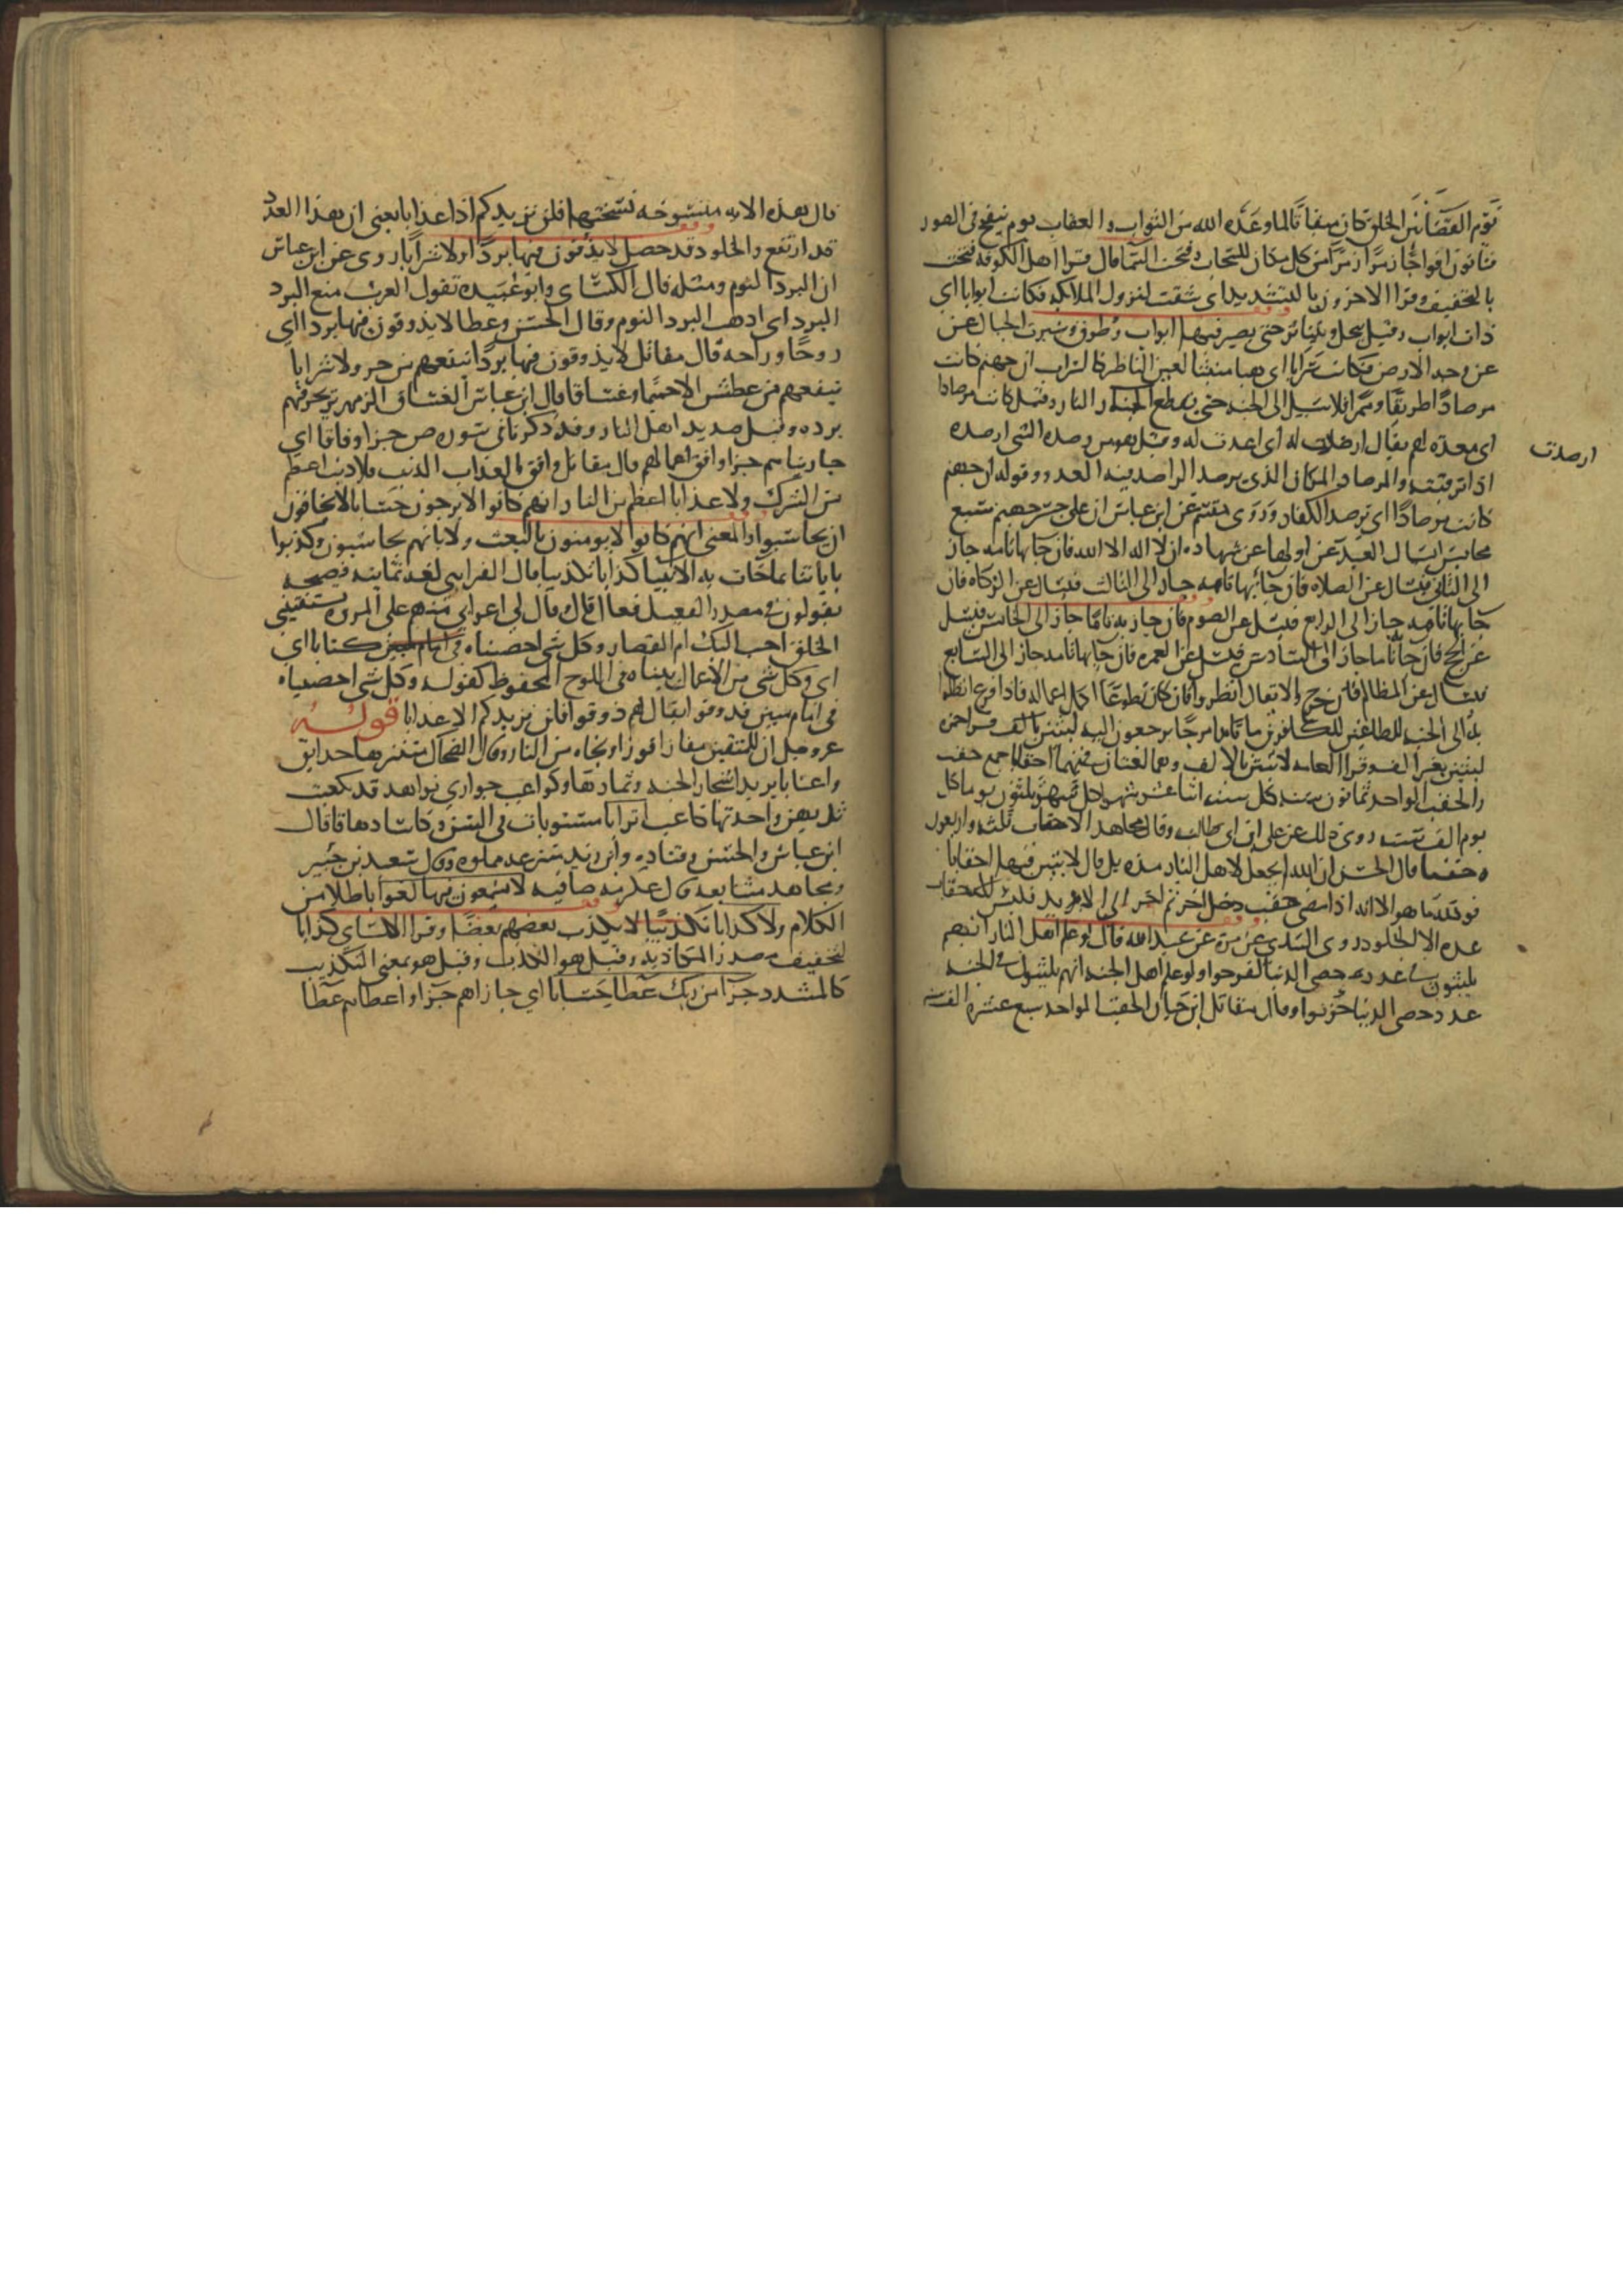 يوم القضا بين الخلق كان ميقاتا لما وعده الله من الثواب والعقاب يوم ينفخ في الصور
فتاتون افواجا زمرا زمرا من كل مكان للحساب وفتحت السما قال قرا اهل الكوفة فتحت
بالتخفيف وقرا الاخرون بالتشديد اي شقت لنزول الملايكه فكانت ابوابا اي
ذات ابواب وقيل تنحل وتتناثر حتى يصير فيها ابواب وطرق وسيرت الجبال عن
عن وجه الارض فكانت سرابا اي هبا منبثا لعين الناظر كالسراب ان جهنم كانت
مرصادا طريقا وممرا فلا سبيل الى الجنه حتى يقطع النار وقيل كانت مرصادا
اي معدة لهم يقال ارصدت له اي اعدت له وقيل هو من رصدت الشي ارصده
ارصدت
اذا ترقبته والمرصاد المكان الذي يرصد الراصد فيه العدو وقوله ان جهنم
كانت مرصادا اي ترصد الكفار وروى مقسم عن ابن عباس ان على جسر جهنم سبع
محابس يسال العبد عن اولها عن شهادة ان لا اله الا الله فان جا بها تامه جاز
الى الثاني فيسال عن الصلاه فان جا بها تامه جاز الى الثالث فيسال عن الزكاه فان
جا بها تامه جاز الى الرابع فيسل عن الصوم فان جا به تاما جاز الى الخامس فيسل
عن الحج فان جا به تاما جاز الى السادس فيسل عن العمره فان جا بها تامه جاز الى السابع
فيسال عن المظالم فان خرج والا يقال انظروا فان كان تطوعا اكمل اعماله فاذا فرغ انطلق
به الى الجنه للطاغين للكافرين مابا مرجعا يرجعون اليه لبثين قرا حمزه
لبثين بغير الف وقرا العامه لابثين بالالف وهما لغتان فيها احقابا جمع حقب
والحقب الواحد ثمانون سنه كل سنه اثنا عشر شهرا كل شهر ثلثون يوما كل
يوم الف سنه روي ذلك عن علي ابن ابي طالب وقال مجاهد الاحقاب ثلثه واربعون
حقبا قال الحسن ان الله لم يجعل لاهل النار مده بل قال لابثين فيها احقابا
فو الله ما هو الا انه اذا مضى حقب دخل اخر ثم اخر الى الابد فليس للاحقاب
عده الا الخلود وروى السدي عن مرة عن عبد الله قال لو علم اهل النار انهم
يلبثون في عدد حصى الدنيا لفرحوا ولو علم اهل الجنه انهم يلبثون في الجنه
عدد حصى الدنيا لحزنوا وقال مقاتل ابن حيان الحقب الواحد سبع عشره الف سنه
قال هذه الايه منسوخه نسختها فلن نزيدكم الا عذابا يعني ان هذا العدد
قد ارتفع والخلود قد حصل لا يذوقون فيها بردا ولا شرابا روي عن ابن عباس
ان البرد النوم ومثله قال الكسائي وابو عبيده تقول العرب منع البرد
البرد اي اذهب البرد النوم وقال الحسن وعطا لا يذوقون فيها بردا اي
روحا وراحه قال مقاتل لا يذوقون فيها بردا ينفعهم من حر ولا شرابا
ينفعهم من عطش الا حميما وغساقا قال ابن عباس الغساق الزمهرير يحرقهم
برده وقيل صديد اهل النار وقد ذكرنا في سورة ص جزا وفاقا اي
جازيناهم جزا وافق اعمالهم قال مقاتل وافق العذاب الذنب فلا ذنب اعظم
من الشرك ولا عذابا اعظم من النار انهم كانوا لا يرجون حسابا لا يخافون
ان يحاسبوا والمعنى انهم كانوا لا يومنون بالبعث ولا بانهم يحاسبون وكذبوا
باياتنا بما جات به الانبيا كذابا تكذيبا قال الفرا هي لغه يمانيه فصيحه
يقولون في مصدر التفعيل فعال قال وقال لي اعرابي منهم على المروه يستفتيني
الحلق احب اليك ام القصار وكل شي احصيناه كتابا اي
اي وكل شي من الاعمال بيناه في اللوح المحفوظ كقوله وكل شي احصيناه
في امام مبين فذوقوا يقال لهم ذوقوا فلن نزيدكم الا عذابا قوله
عز وجل ان للمتقين مفازا فوزا ونجاه من النار وقال الضحاك متنزها حدايق
واعنابا يريد اشجار الجنه وثمارها وكواعب جواري نواهد قد تكعبت
ثديهن واحدتها كاعب اترابا مستويات في السن وكاسا دهاقا قال
ابن عباس والحسن وقتاده وابن زيد مترعه مملوه وقال سعيد بن جبير
ومجاهد متتابعه قال عكرمه صافيه لا يسمعون فيها لغوا باطلا من
الكلام ولا كذابا تكذيبا لا يكذب بعضهم بعضا وقرا الكسائي كذابا
بالتخفيف مصدر المكاذبه وقيل هو الكذب وقيل هو بمعنى التكذيب
كالمشدد جزا من ربك عطا حسابا اي جازاهم جزا واعطاهم عطا